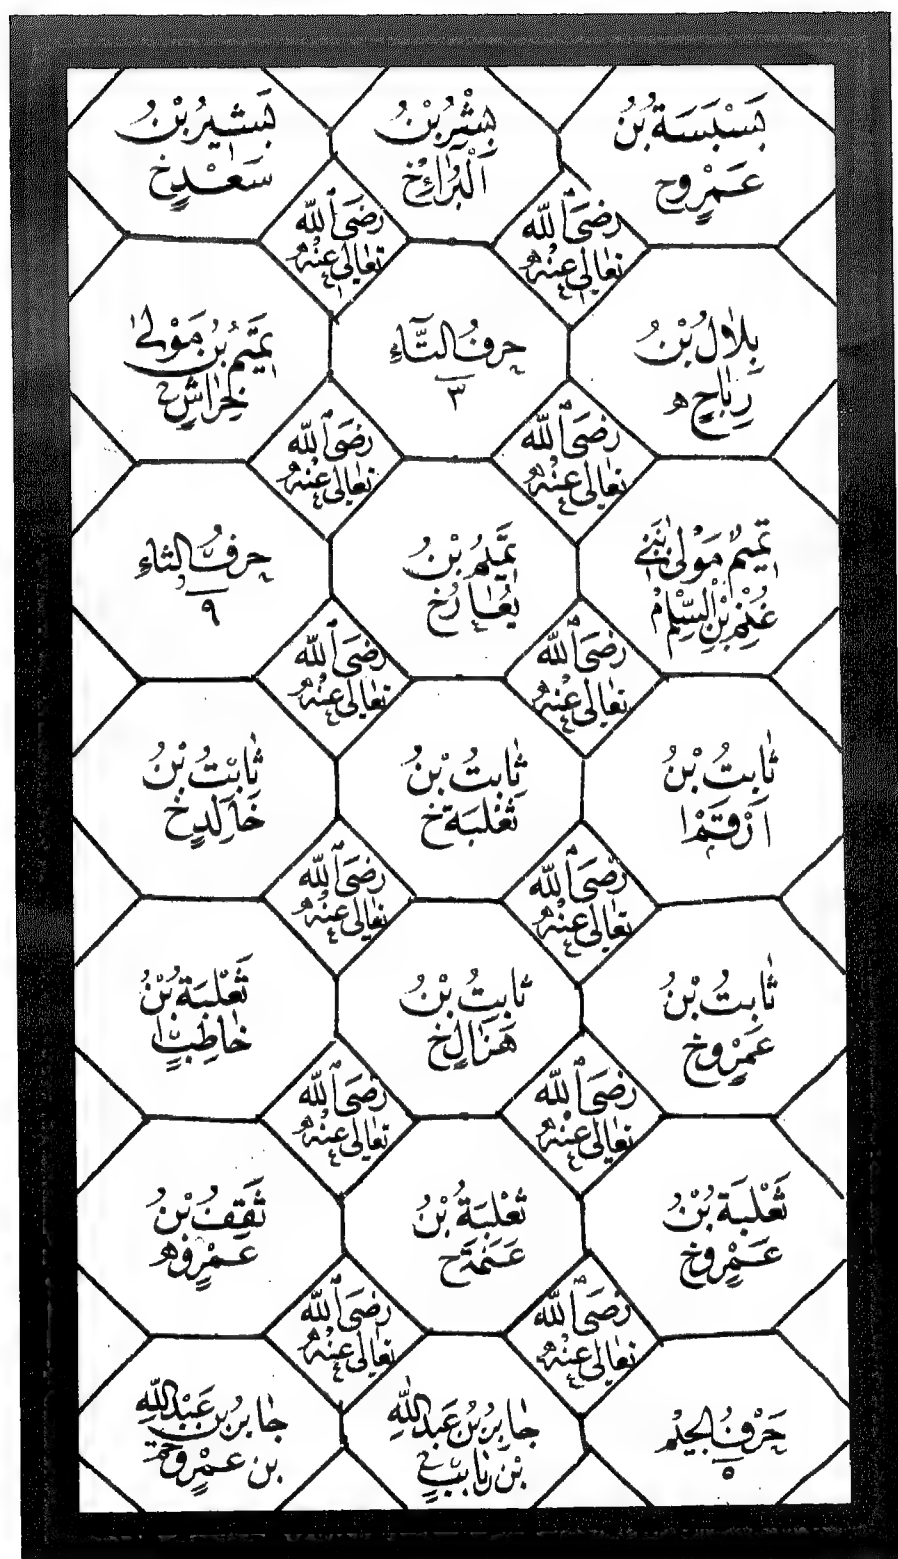 بَسْبَسَةُ بْنُ
عَمْرٍو خ
بِشْرُ بْنُ
الْبَرَاءِ خ
بَشِيْرُ بْنُ
سَعْدٍ خ
رَضِيَ اللّٰه
تَعَالٰى عَنْهُ
رَضِيَ اللّٰه
تَعَالٰى عَنْهُ
بِلَالُ بْنُ
رَبَاحٍ ه
حرفُ التَّاءِ
٣
تَمِيْمُ بْنُ مَوْلٰى
خِرَاشٍ خ
رَضِيَ اللّٰه
تَعَالٰى عَنْهُ
رَضِيَ اللّٰه
تَعَالٰى عَنْهُ
تَمِيْمٌ مَوْلٰى بَنِيْ
غُنْمِ بْنِ السِّلْمِ
تَمِيْمُ بْنُ
يُعَارَ خ
حرفُ الثاءِ
٩
رَضِيَ اللّٰه
تَعَالٰى عَنْهُ
رَضِيَ اللّٰه
تَعَالٰى عَنْهُ
ثَابِتُ بْنُ
اَرْقَمْ ا
ثَابِتُ بْنُ
ثَعْلَبَةَ خ
ثَابِتُ بْنُ
خَالِدٍ خ
رَضِيَ اللّٰه
تَعَالٰى عَنْهُ
رَضِيَ اللّٰه
تَعَالٰى عَنْهُ
ثَابِتُ بْنُ
عَمْرٍو خ
ثَابِتُ بْنُ
هَزَالٍ خ
ثَعْلَبَةُ بْنُ
حَاطِبٍ ا
رَضِيَ اللّٰه
تَعَالٰى عَنْهُ
رَضِيَ اللّٰه
تَعَالٰى عَنْهُ
ثَعْلَبَةُ بْنُ
عَمْرٍو خ
ثَعْلَبَةُ بْنُ
عَنَمَةَ خ
ثَقِفُ بْنُ
عَمْرٍو ه
رَضِيَ اللّٰه
تَعَالٰى عَنْهُ
رَضِيَ اللّٰه
تَعَالٰى عَنْهُ
حَرْفُ الْجِيْمِ
٥
جَابِرُ بْنُ عَبْدِ اللّٰهِ
بْنِ
جَابِرُ بْنُ عَبْدِ اللّٰهِ
بن عَمْرٍو خ